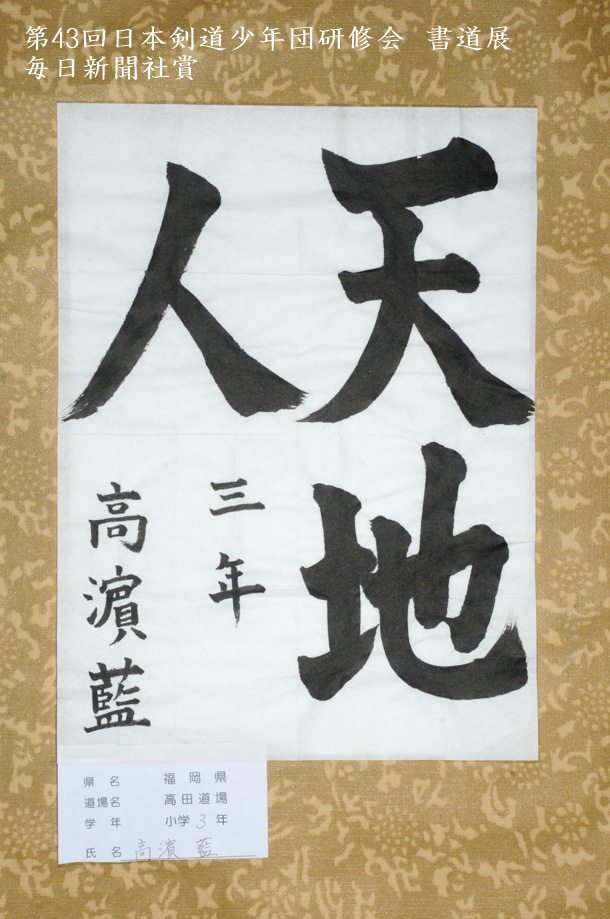 第43回日本剣道少年団研修会 書道展
毎日新聞社賞
天地
人
三年
高濵藍
県名 福岡県
道場名 高田道場
学年 小学3年
氏名 高濵藍